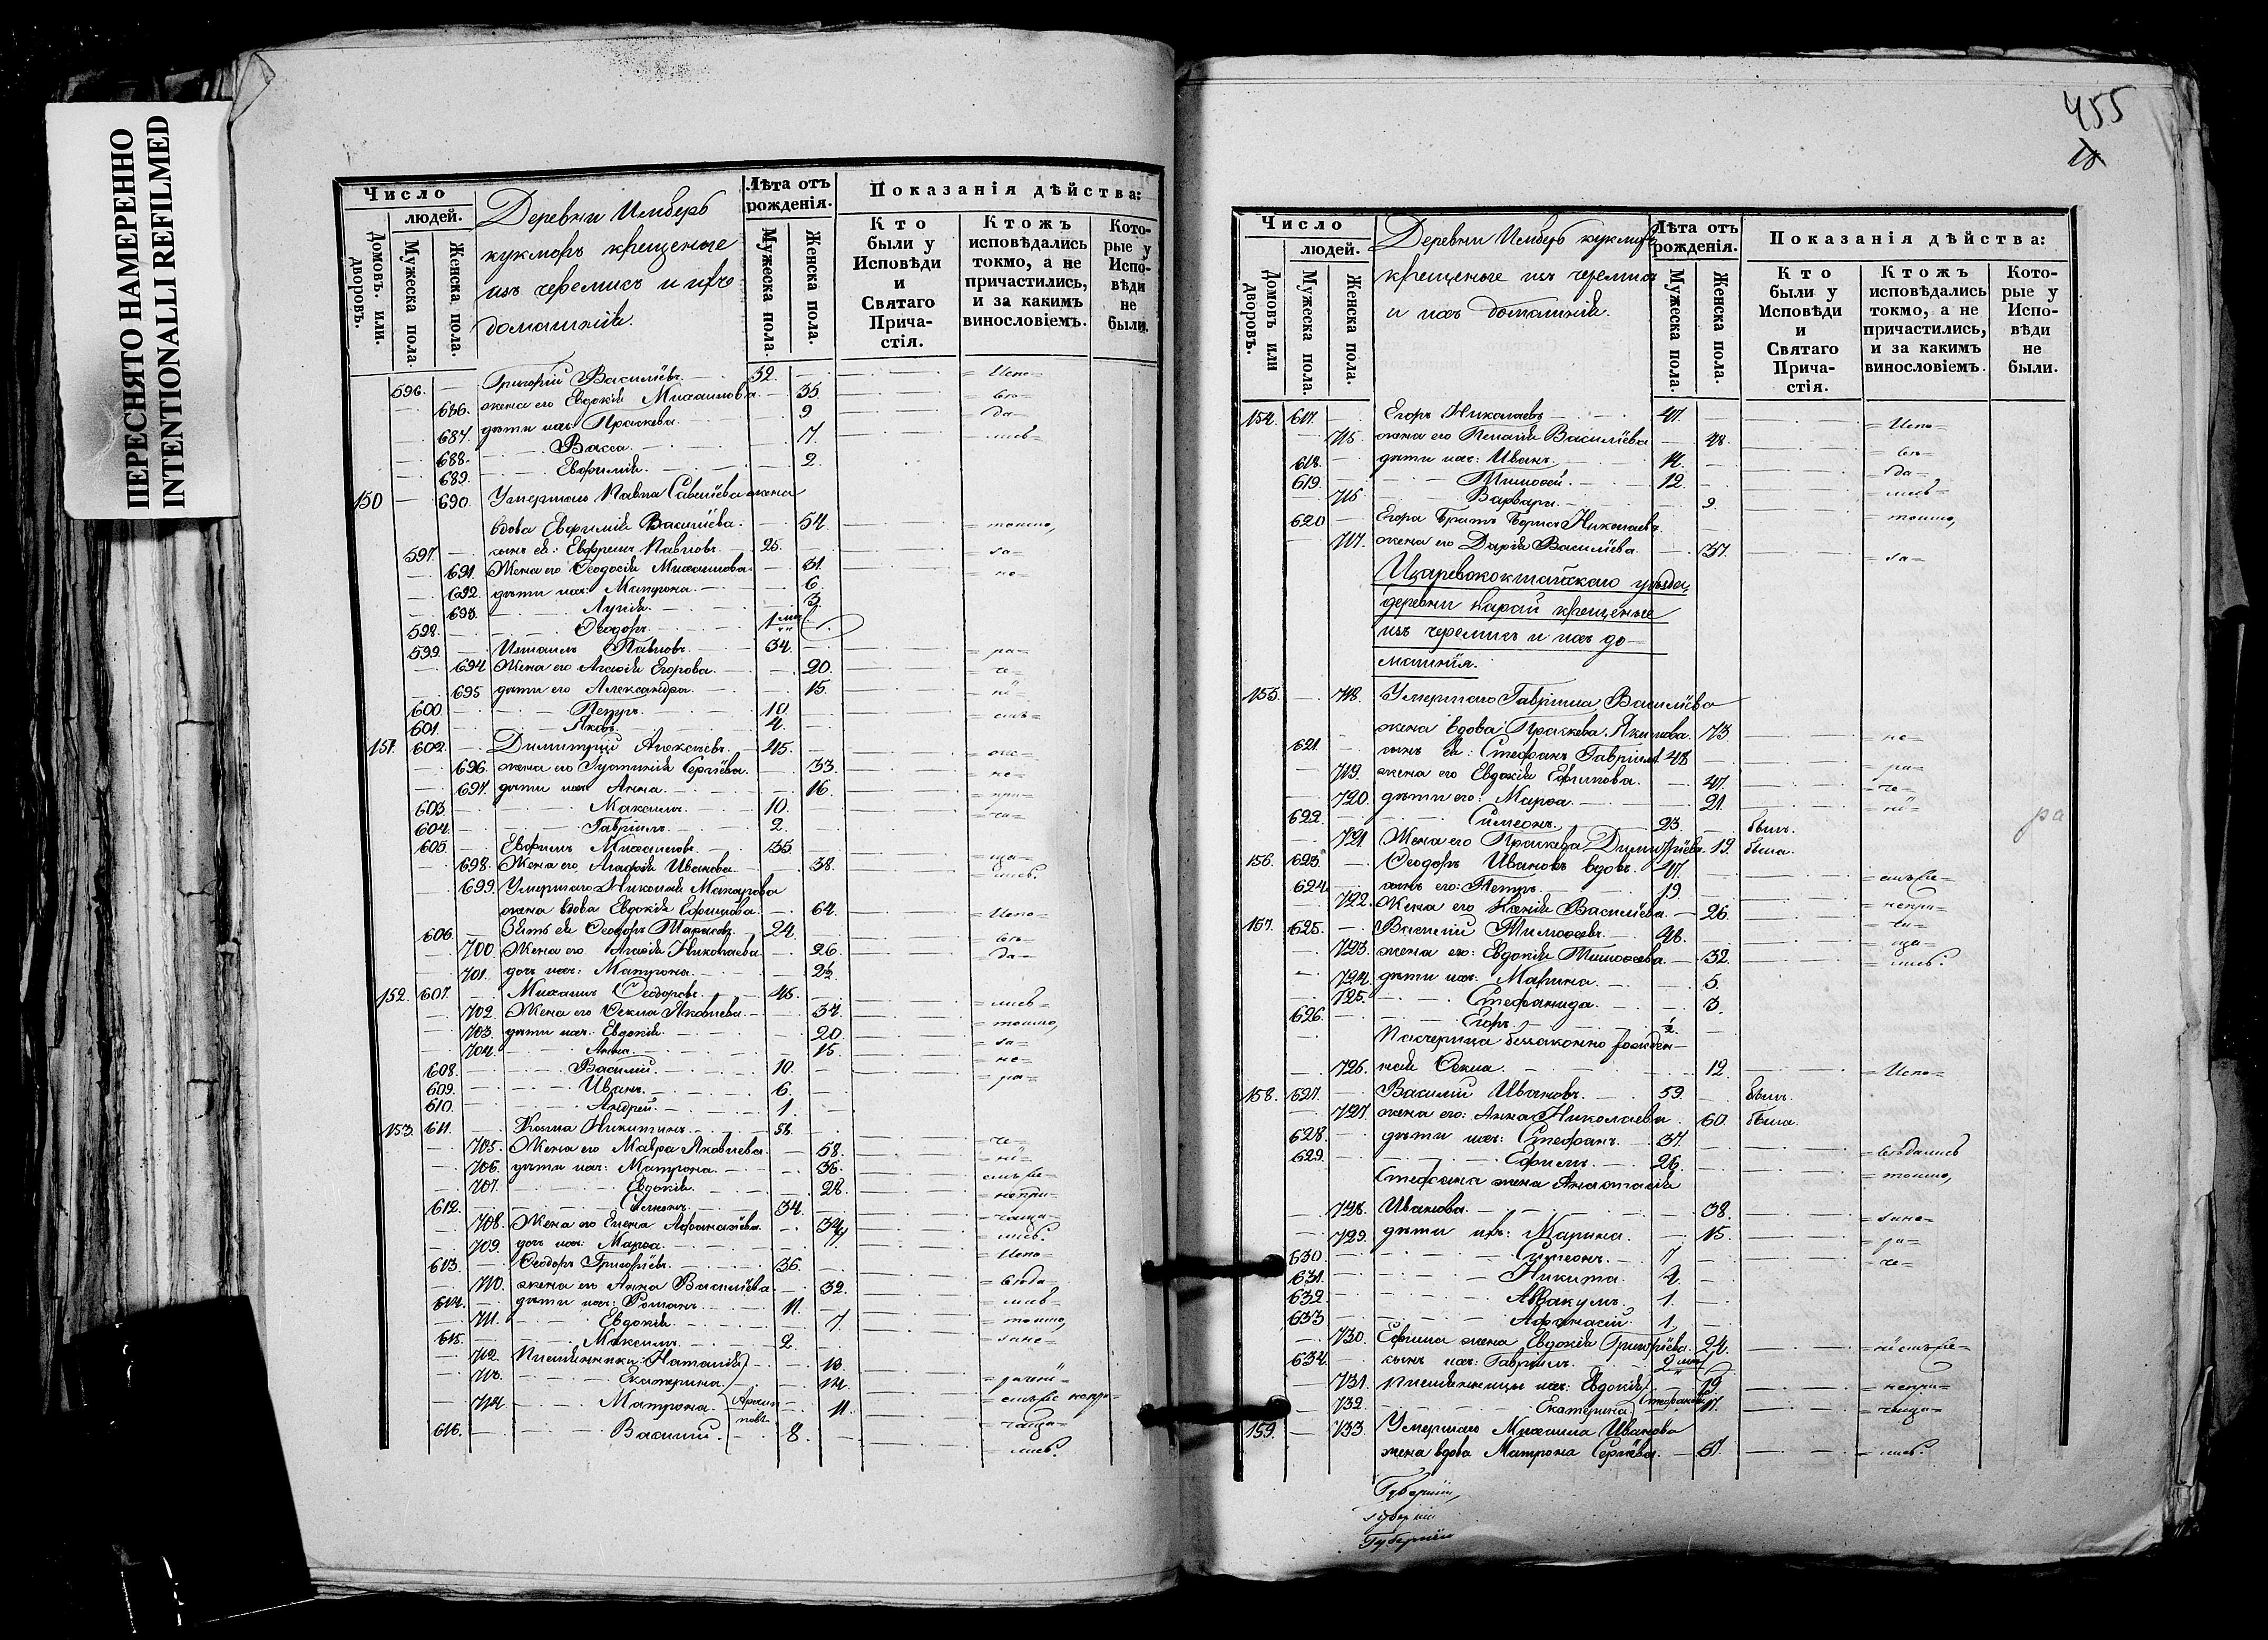 ПЕРЕСНЯТО НАМЕРЕННО
INTENTIONALLI REFILMED
Число
людей.
Домовъ. или. дворовъ.
Мужеска пола.
Женска пола.
Деревни Имберь
кукморъ крещеные
изъ черемисъ и ихъ
домашнія.
Лѣта отъ рожденія.
Мужеска пола.
Женска пола.
Показанія дѣйства:
Кто были у Исповѣди и Святаго Причастія.
Ктожъ исповѣдались токмо, а не причастились, и за какимъ винословіемъ.
Которые у Исповѣди не были.
596. Григорій Васильевъ 32. = Испо=
686. жена его Евдокія Михаилова 35 = вѣ=
687. дѣти ихъ: Праскева 9 = да=
688. Васса 7. = лись=
689. Евфимія 2.
150 690. Умершаго Павла Савельева жена
вдова Евфимія Васильева. 54. = токмо,
597. сынъ ея: Евфремъ Павловъ 25. = за=
691. Жена его Ѳеодосія Михаилова 31. = не=
692. дѣти ихъ: Матрона 6.
693. Лукія 3.
598. Ѳеодоръ 1 мѣ
599. Измаилъ Павловъ 34. = ра=
694 Жена его Агафія Егорова 20. = че=
695 дѣти его Александра 15. = ні=
600. Петръ 10. = емъ=
601. Яковъ 4.
151. 602. Димитрій Алексѣевъ 45.
696. жена его Іустинія Сергіева 33. = не=
697. дѣти ихъ Анна 16. = при=
603. Максимъ 10. = ча=
604. Гавріилъ 2.
605. Евфимъ Михаиловъ 35. = ща=
698. Жена его Агафія Иванова 38. = лись.
699. Умершаго Николая Макарова
жена вдова Евдокія Ефимова 64. = Испо=
606. Зять ея Ѳеодоръ 24. = вѣ=
700. Жена его Агафія Николаева 26. = да=
701. дочь ихъ: Матрона
152. 607. Михаилъ Ѳеодоровъ 45. = лись=
702. Жена его Ѳекла Яковлева 34. = токмо,
703. дѣти ихъ: Евдокія 20. = за=
704. Анна 15. = не=
608. Василій 10. = ра=
609. Иванъ 6.
610. Андрей 1.
153. 611. Козма Никитинъ 58. = че=
705. Жена его Мавра Яковлева 58. = ні=
706. дѣти ихъ: Матрона 36. емъ Ѳе=
707. Евдокія 28. = непри=
612. Симеонъ 34. = чаща=
708. Жена его Елена Афанасіева 34. = лись.
709. дочь ихъ: Марѳа = Испо=
613. Ѳеодоръ Григорьевъ 36.
710. жена его Анна Васильева 32. = вѣда=
614. дѣти ихъ: Романъ 11. = лись=
711. Евдокія 7. = токмо,
615. Максимъ 2. = зане=
712. Племянники: Наталія 18.
713. Екатерина 14. = раченi=
714. Матрона. 11. = емъ непри=
616. Василій. 8. = чаща=
= лись.
455
18
Число
людей.
Домовъ или дворовъ.
Мужеска пола.
Женска пола.
Деревни Имберь кукморъ
крещеные изъ черемисъ
и ихъ домашнія.
Лѣта отъ рожденія.
Мужеска пола.
Женска пола.
Показанія дѣйства:
Кто были у Исповѣди и Святаго Причастія.
Ктожъ исповѣдались токмо, а не причастились, и за какимъ винословіемъ.
Которые у Исповѣди не были.
154. 617. Егоръ Николаевъ 47. = Испо=
715. жена его Пелагія Васильева 48. = вѣ=
618. дѣти ихъ: Иванъ 14. = да=
619. Тимоѳей 12. = лись=
716. Варвара 9
620 Егора братъ Борисъ Николаевъ = токмо,
717. жена его Дарія Васильева 37. = за=
Царевококшайскаго уѣзда,
деревни Карай крещеные
изъ черемисъ и ихъ до=
машнія.
155. 718. Умершаго Гавріила Васильева
жена вдова Праскева Якимова. 73. = не=
621. сынъ ея: Стефанъ Гавріиловъ 48
719. жена его Евдокія Ефимова. 47. = ра=
720. дѣти его: Марѳа. 21. = че=
622. Симеонъ. 23. былъ. = ні=
ра
721. Жена его Праскева Димитріева. 19. была.
156. 623. Ѳеодоръ Ивановъ вдовъ. 47. = емъ Ѳе=
624. сынъ его: Петръ 19. = непри=
722. Жена его Ксенія Васильева. 26. = ча=
157. 625. Василій Тимоѳеевъ 46. = ща=
723. жена его: Евдокія Тимоѳеева. 32. = лись.
724. дѣти ихъ: Марина 5.
725. Стефанида. 3.
626. Егоръ. ½.
Пасчерица беззаконно рожден=
726. ная Ѳекла. 12. = Испо=
158. 627. Василій Ивановъ. 59. былъ.
727. жена его: Анна Николаева 60. была.
628. дѣти ихъ: Стефанъ. 37. = вѣдались
629. Ефимъ. 26. = токмо,
Стефана жена Анастасія
728. Иванова 38. = зане=
729. дѣти ихъ: Марина. 15. = ра=
630. Симеонъ. 7 = че=
631. Никита. 4.
632. Аввакумъ. 1.
633 Афанасій. 1.
730. Ефима жена Евдокія Григоріева. 24. = ніемъ Ѳе=
634. сынъ ихъ: Гавріилъ.
731. племянницы ихъ: Евдокія 19. = непри=
732. Екатерина. 17. = чаща=
159. 733. Умершаго Михаила Иванова
жена вдова Матрона Сергіева. 67. = лись.
Губерніи,
губерніи
Губерніи